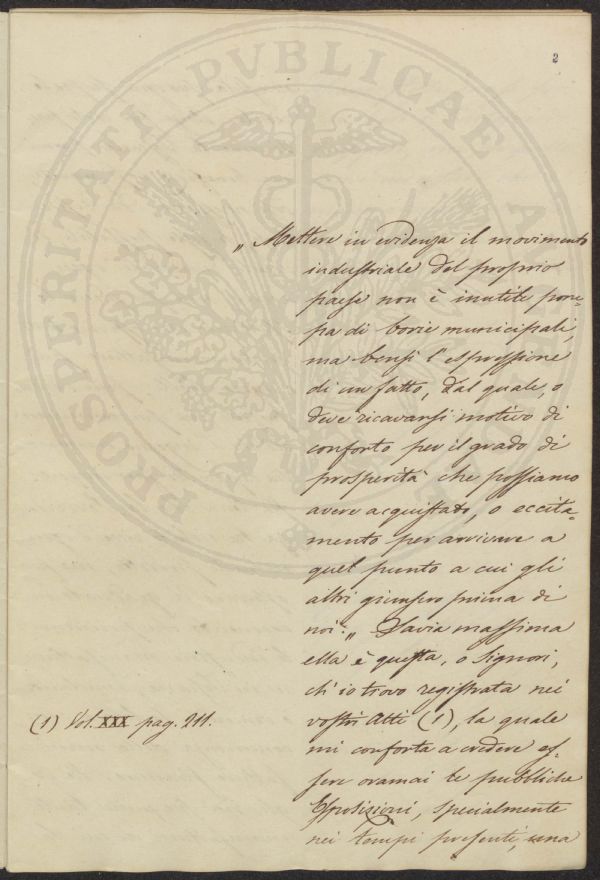 2
PROSPERITATI PVBLICAE
„ Mettere in evidenza il movimento
industriale del proprio
paese non è inutile pom-
pa di borie municipali,
ma bensì l'espressione
di un fatto, dal quale, o
deve ricavarsi motivo di
conforto per il grado di
prosperità che possiamo
avere acquistato, o eccita-
mento per arrivare a
quel punto a cui gli
altri giunsero prima di
noi. „ Savia massima
ella è questa, o Signori,
ch'io trovo registrata nei
vostri Atti (1), la quale
mi conforta a credere es-
sere oramai le pubbliche
Esposizioni, specialmente
nei tempi presenti, una
(1) Vol. XXX pag. 211.